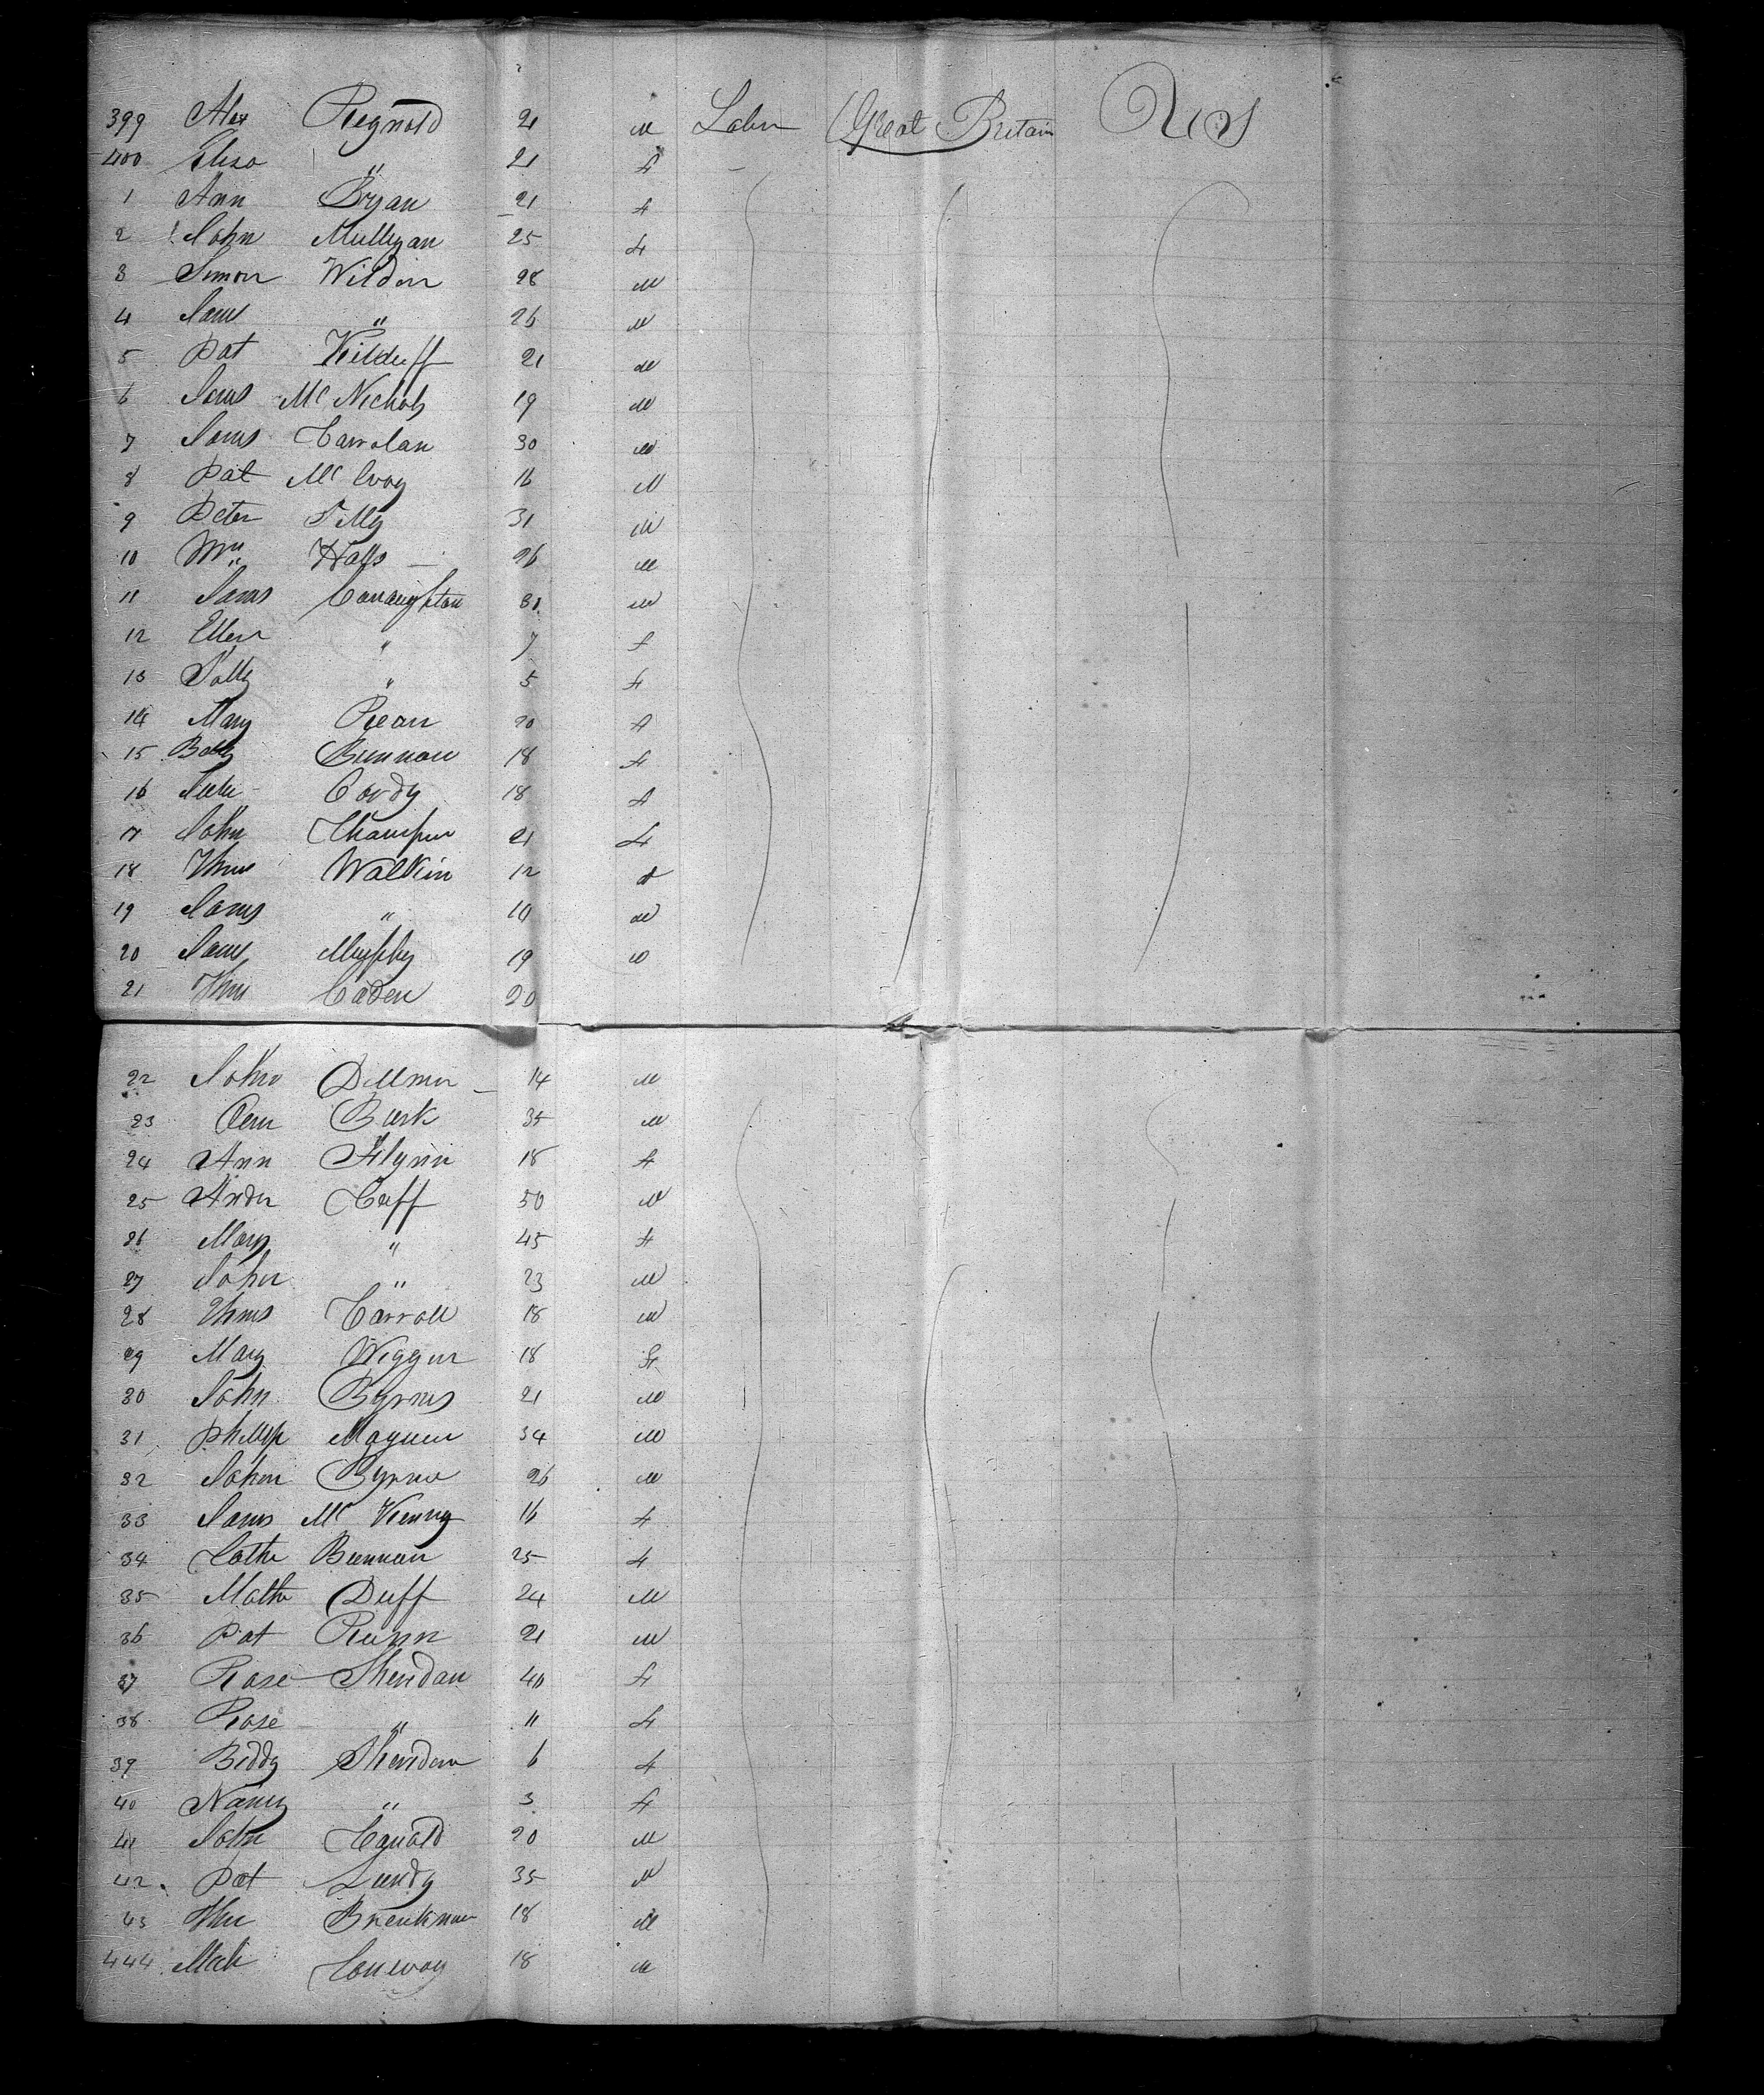 399 Alex Reynold 21 M Labor Great Britain U S
400 Elisa " 21 f
1 Ann Bryan 21 f
2 John Mulligan 25 f
3 Simon Wildon 28 M
4 " 26 M
5 Pat Kilduff 21 M
6 James Mc Nichols 19 M
7 James Carrolan 30 M
8 Pat Mc Evoy 16 M
9 Peter 31 M
10 Wm 26 M
11 James Conaughton 31 M
12 Ellen " 7 f
13 " 5 f
14 Mary Rean 20 f
15 Brennan 18 f
16 18 f
17 John 21 f
18 Thms Walkin 12
19 James " 10 M
20 Murphy 19
21 Thms Caden 20
22 John 14 M
23 Burk 35 M
24 Ann Flynn 18 f
25 Andr Cuff 50 M
26 Mary " 45 f
27 John " 23 M
28 Thms Carroll 18 M
29 Mary 18 f
30 John Byrnes 21 M
31 Phillip 34 M
32 John Byrne 26 M
33 James Mc Kenny 16 f
34 Cathe Brennan 25 f
35 Mathw Duff 24 M
36 Pat 21 M
37 Rose Sheridan 40 f
38 Rose " 11 f
39 Biddy Sheridan 6 f
40 Nancy " 3 f
41 John 20 M
42 Pat Lundy 35 M
43 18 M
444 Conway 18 M